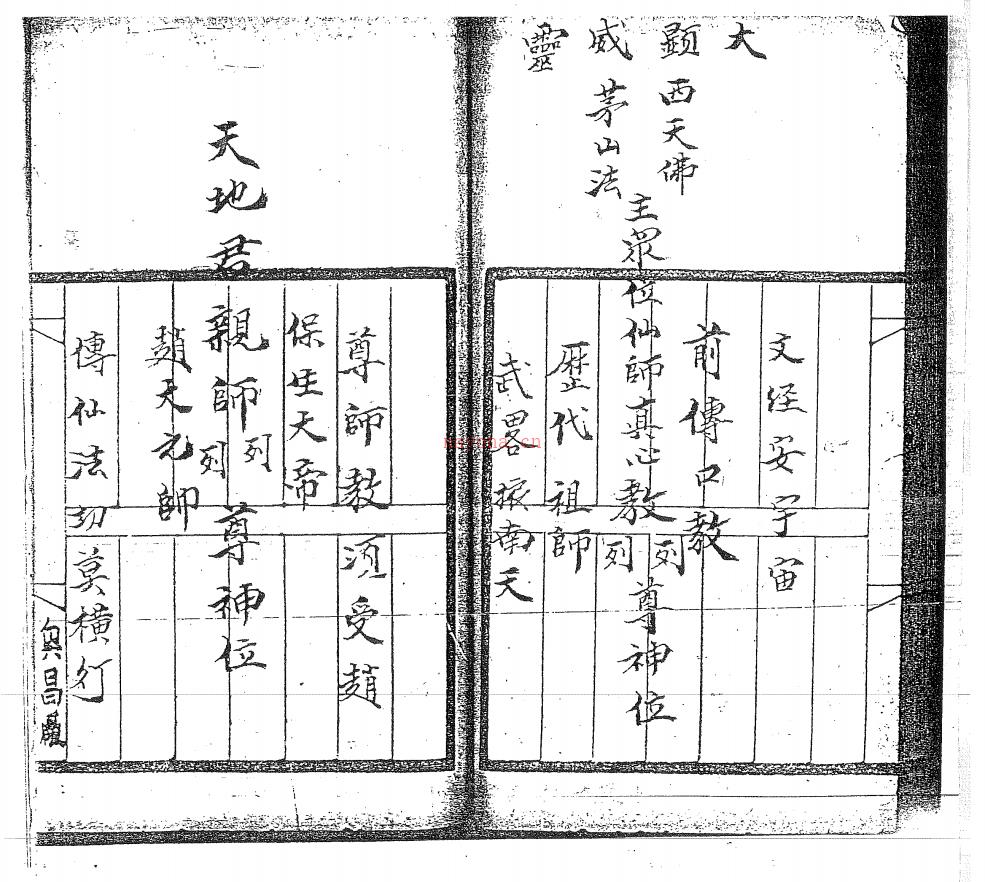 大顯威靈
西天佛
茅山法
主眾位仙師真心教列列尊神位
文經安宇宙
前傳口教
歷代祖師
武畧振南天
天地君親師列列尊神位
尊師教須受趙
保生天帝
趙天元帥
傳仙法切莫橫行
昌